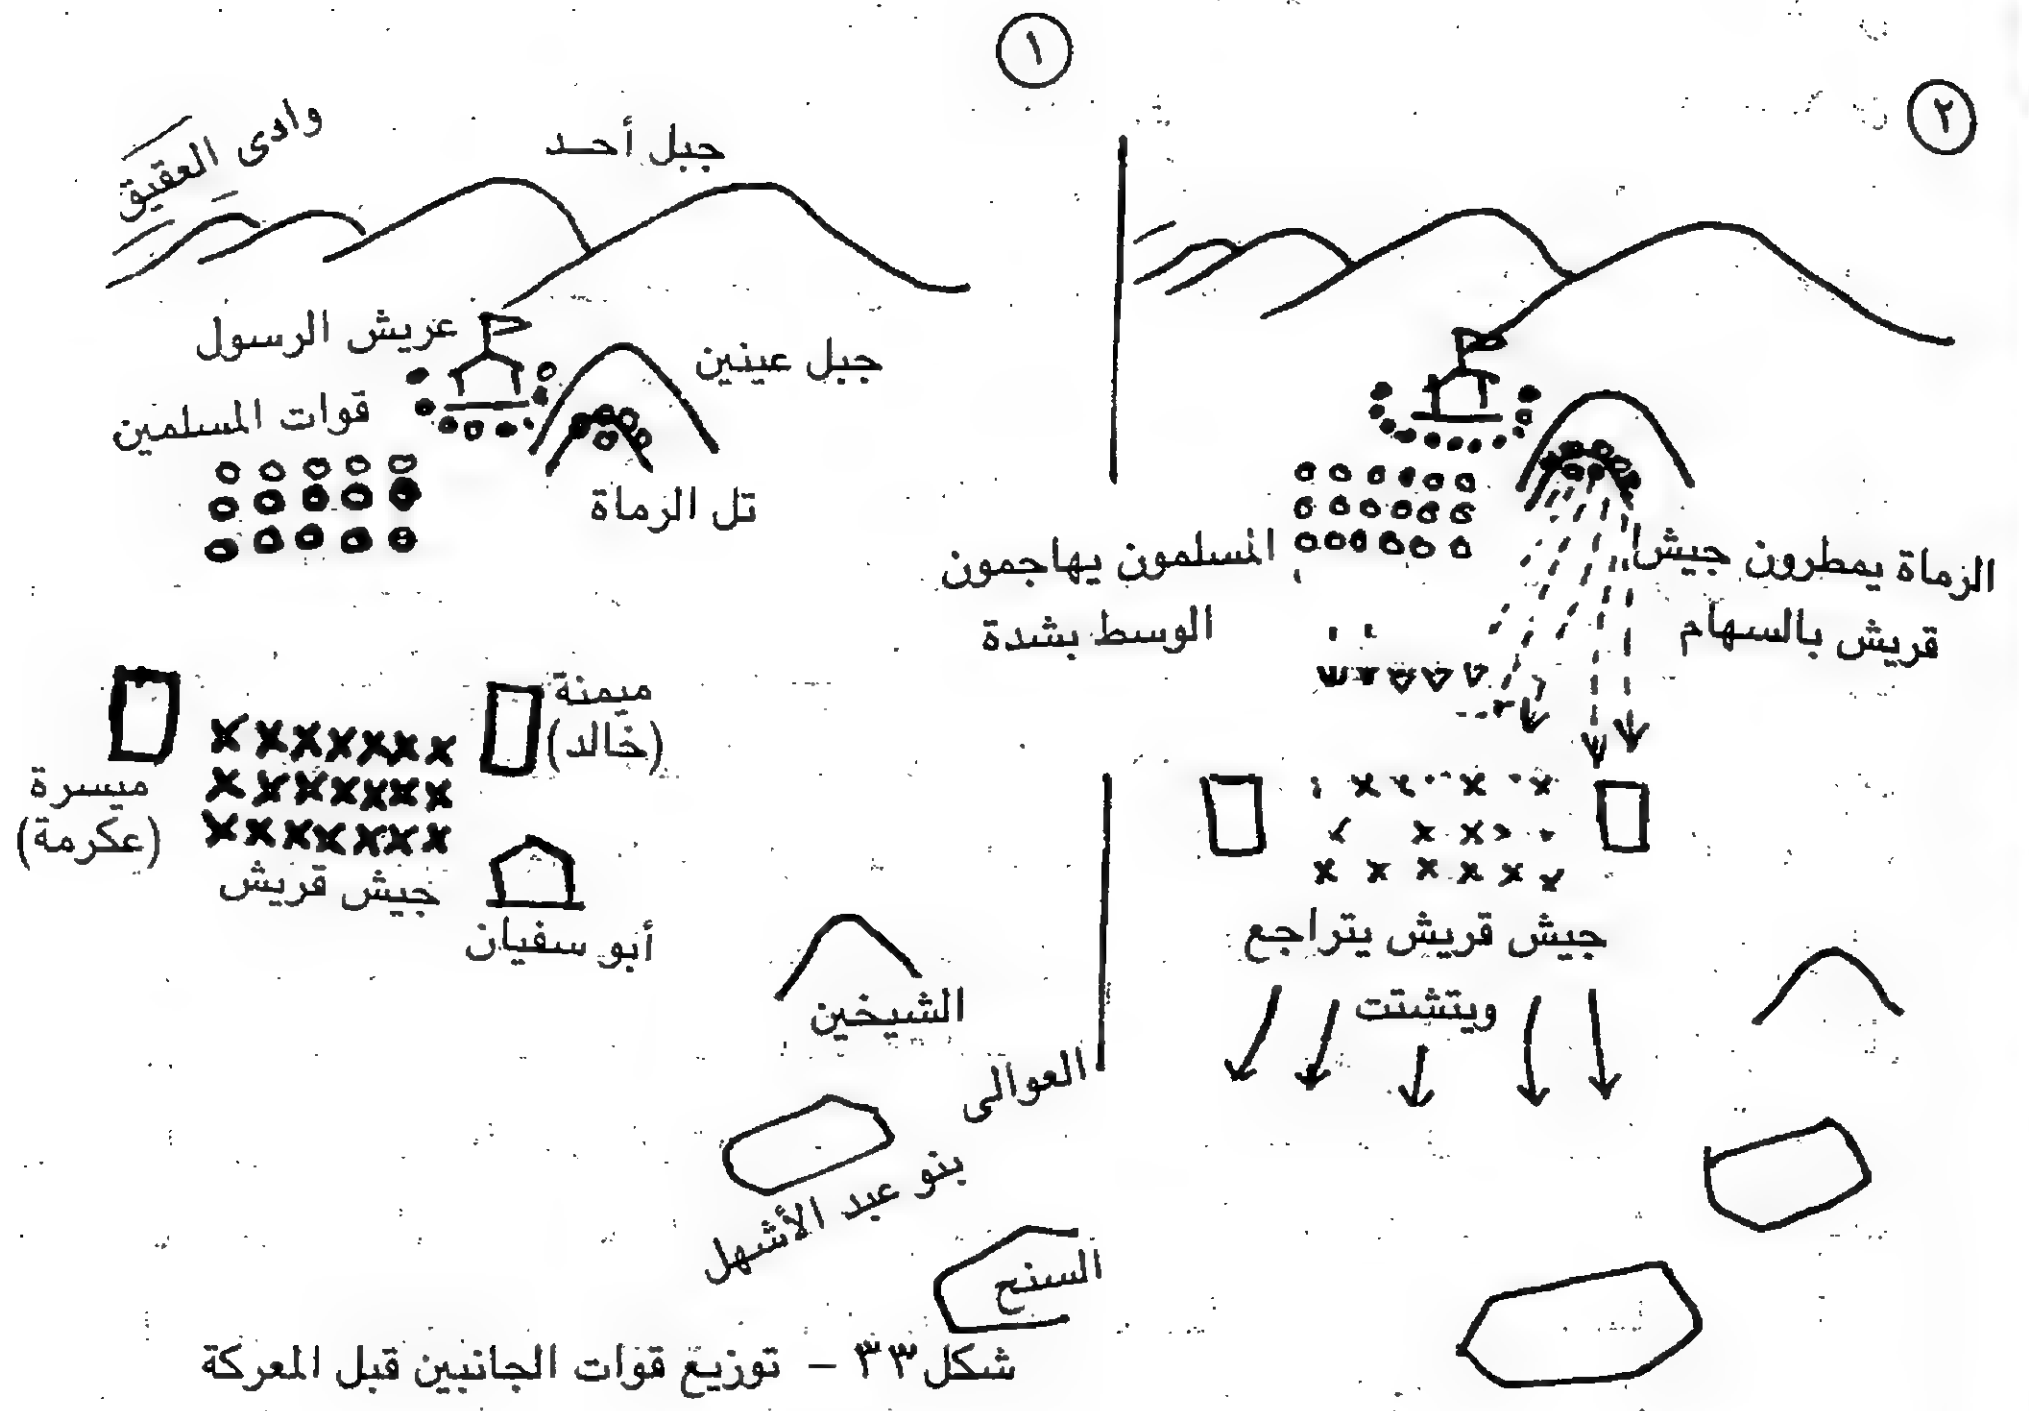 ١
وادى العقيق
جبل أحـد
عريش الرسول
جبل عينين
قوات المسلمين
تل الرماة
ميمنة
(خالد)
ميسرة
(عكرمة)
جيش قريش
أبو سفيان
الشيخين
العوالى
بنو عبد الأشهل
السنح
شكل ٣٣ – توزيع قوات الجانبين قبل المعركة
٢
المسلمون يهاجمون
الوسط بشدة
الرماة يمطرون جيش
قريش بالسهام
جيش قريش يتراجع
ويتشتت